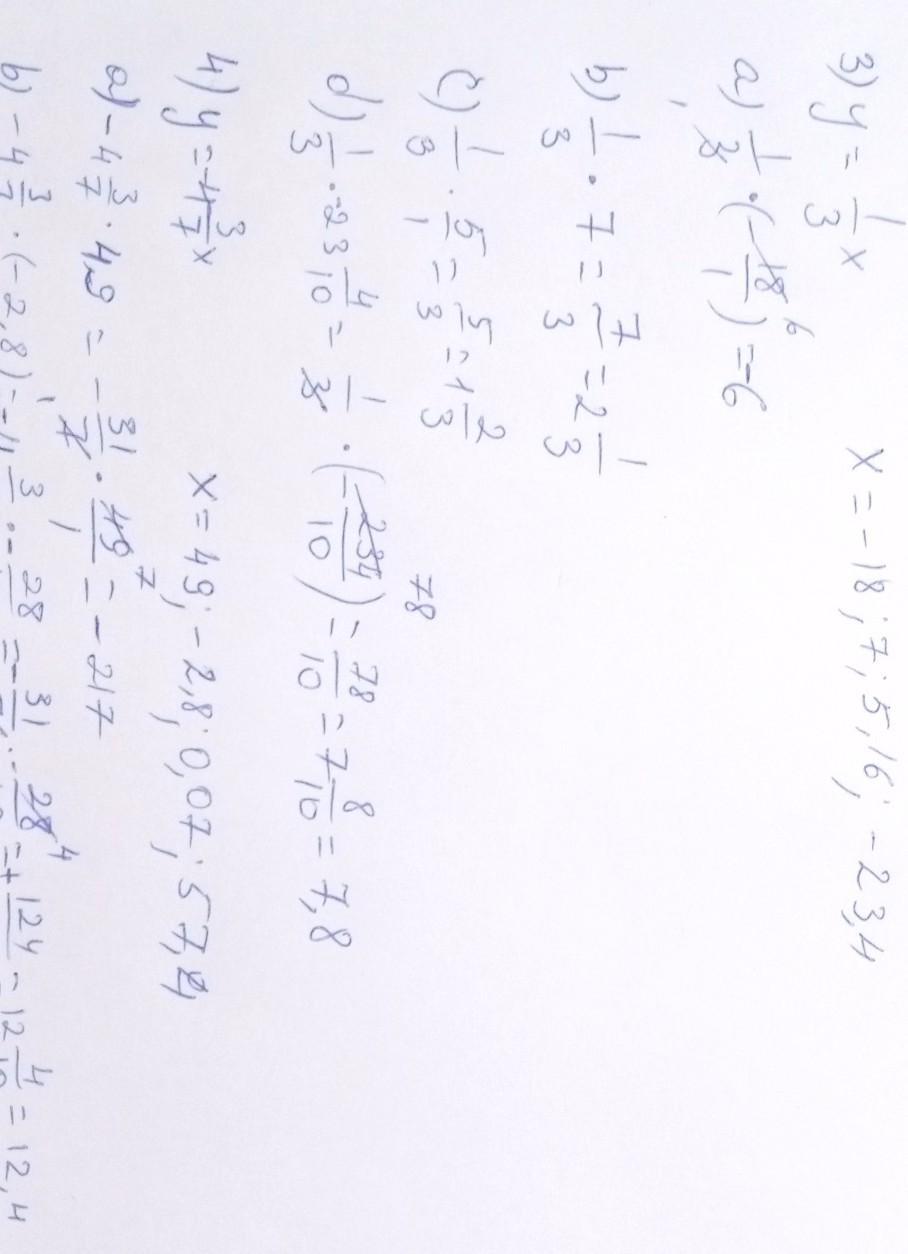 3) y = 1/3 x   x = -18; 7; 5,16; -23,4
a) 1/3 · (-18/1) = -6
1   6
b) 1/3 · 7 = 7/3 = 2 1/3
c) 1/3 · 5/1 = 5/3 = 1 2/3
78
d) 1/3 · -23 4/10 = 1/3 · (-234/10) = 78/10 = 7 8/10 = 7,8
4) y = -4 3/7 x   x = 49; -2,8; 0,07; 57,4
a) -4 3/7 · 49 = -31/7 · 49/1 = -217
1   7
b) -4 3/7 · (-2,8) = -4 3 · -28 = -31 · -28 = +124 = 12 4/10 = 12,4
4